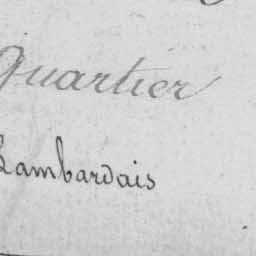 Quartier
Lambardais